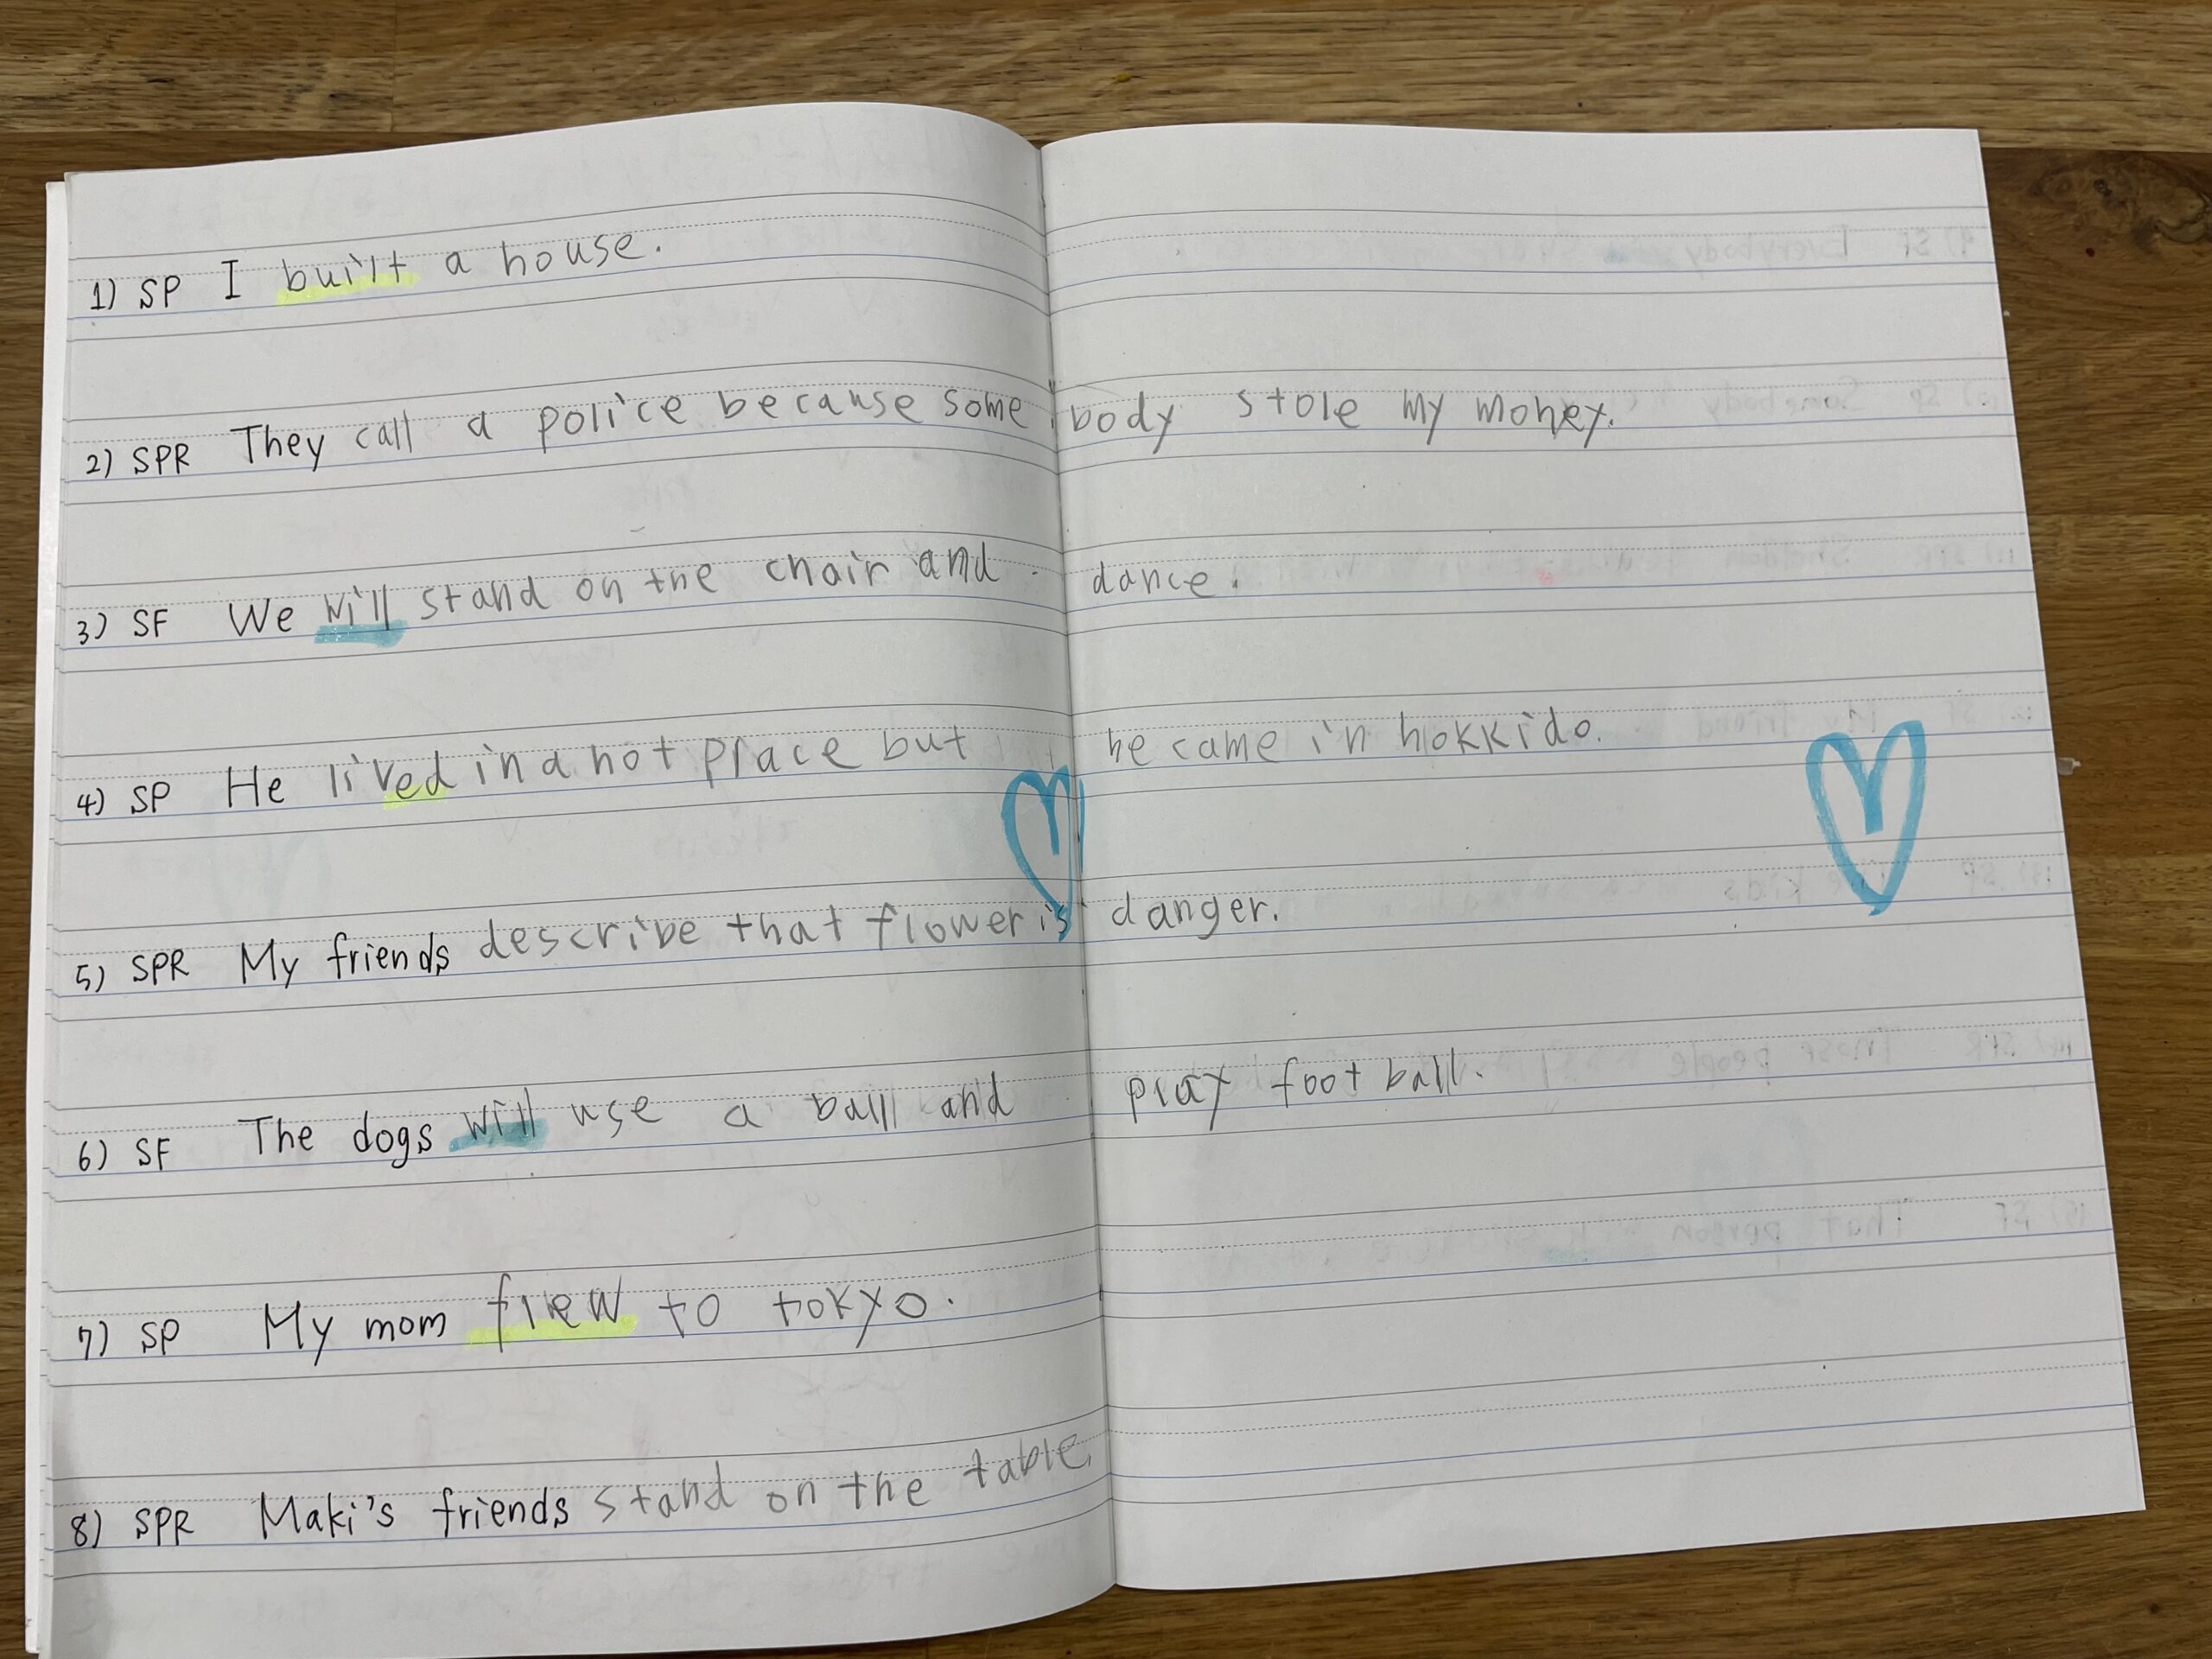 1) SP I built a house.
2) SPR They call a police because somebody stole my money.
3) SF We will stand on the chair and dance.
4) SP He lived in a hot place but he came in hokkido.
5) SPR My friends describe that flower is danger.
6) SF The dogs will use a ball and play foot ball.
7) SP My mom flew to tokyo.
8) SPR Maki's friends stand on the table.